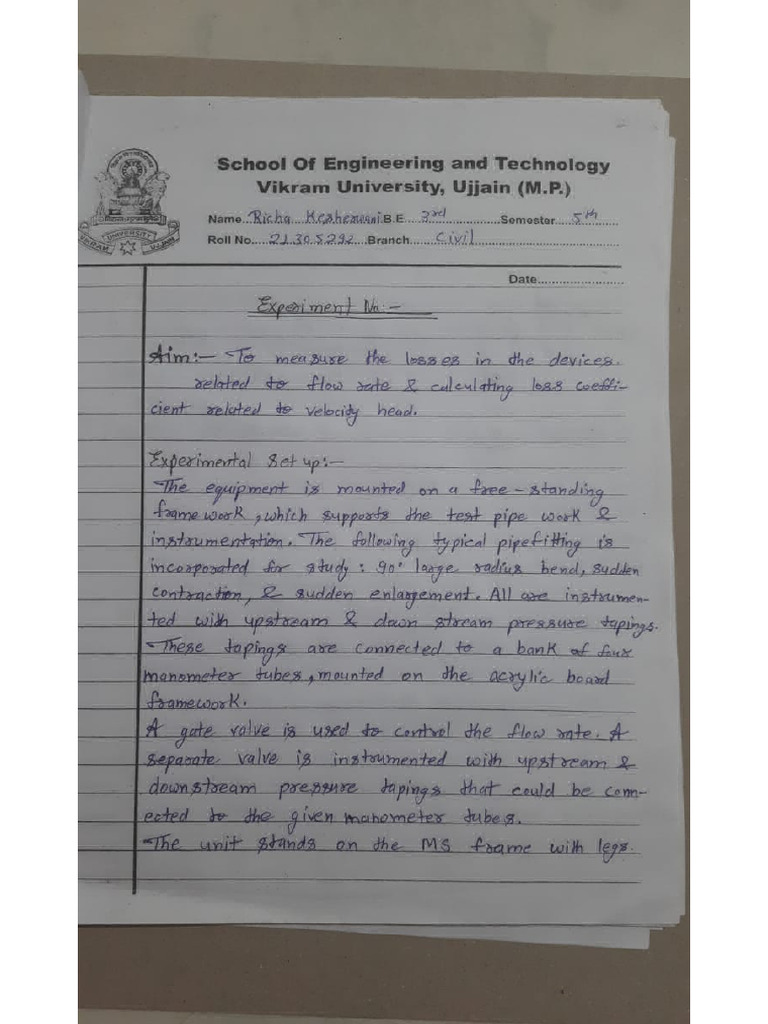 School Of Engineering and Technology
Vikram University, Ujjain (M.P.)
Name. Richa Kesherwani B.E. 3rd Semester 5th
Roll No. 21305292 Branch Civil
VIKRAM UNIVERSITY UJJAIN
Date
Experiment No:-
Aim:- To measure the losses in the devices.
related to flow rate & calculating loss coeffi-
cient related to velocity head.
Experimental Set up:-
The equipment is mounted on a free-standing
framework, which supports the test pipe work &
instrumentation. The following typical pipefitting is
incorporated for study: 90° large radius bend, sudden
contraction, & sudden enlargement. All are instrumen-
ted with upstream & down stream pressure tapings.
These tapings are connected to a bank of four
manometer tubes, mounted on the acrylic board
framework.
A gate valve is used to control the flow rate. A
separate valve is instrumented with upstream &
downstream pressure tapings that could be conn-
ected to the given manometer tubes.
The unit stands on the MS frame with legs.